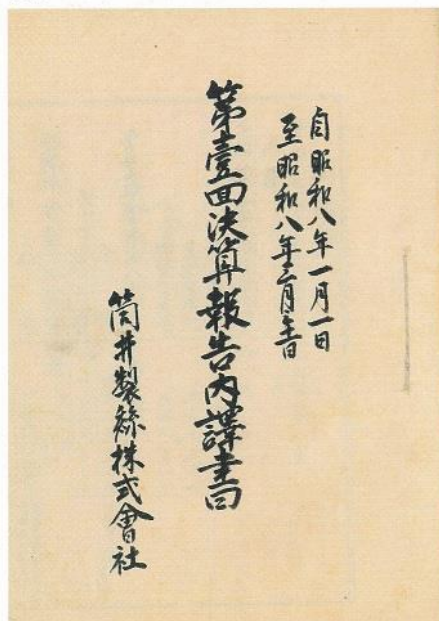 自昭和八年一月一日
至昭和八年三月三十一日
第壹回決算報告内譯書
筒井製絲株式會社